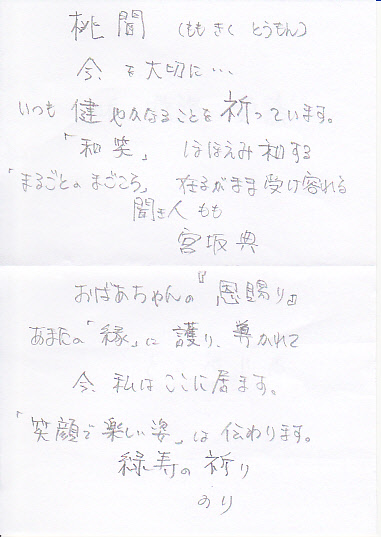 桃聞 (ももきく とうもん)
今、を大切に…
いつも健やかなることを祈っています。
「和笑」 ほほえみ和する
「まるごとのまごころ」 在るがまま受け容れる
聞き人 もも
宮坂典
おばあちゃんの『恩賜り』
あまたの「縁」に護り、導かれて
今、私はここに居ます。
「笑顔で楽しい姿」は伝わります。
緑寿の祈り
のり